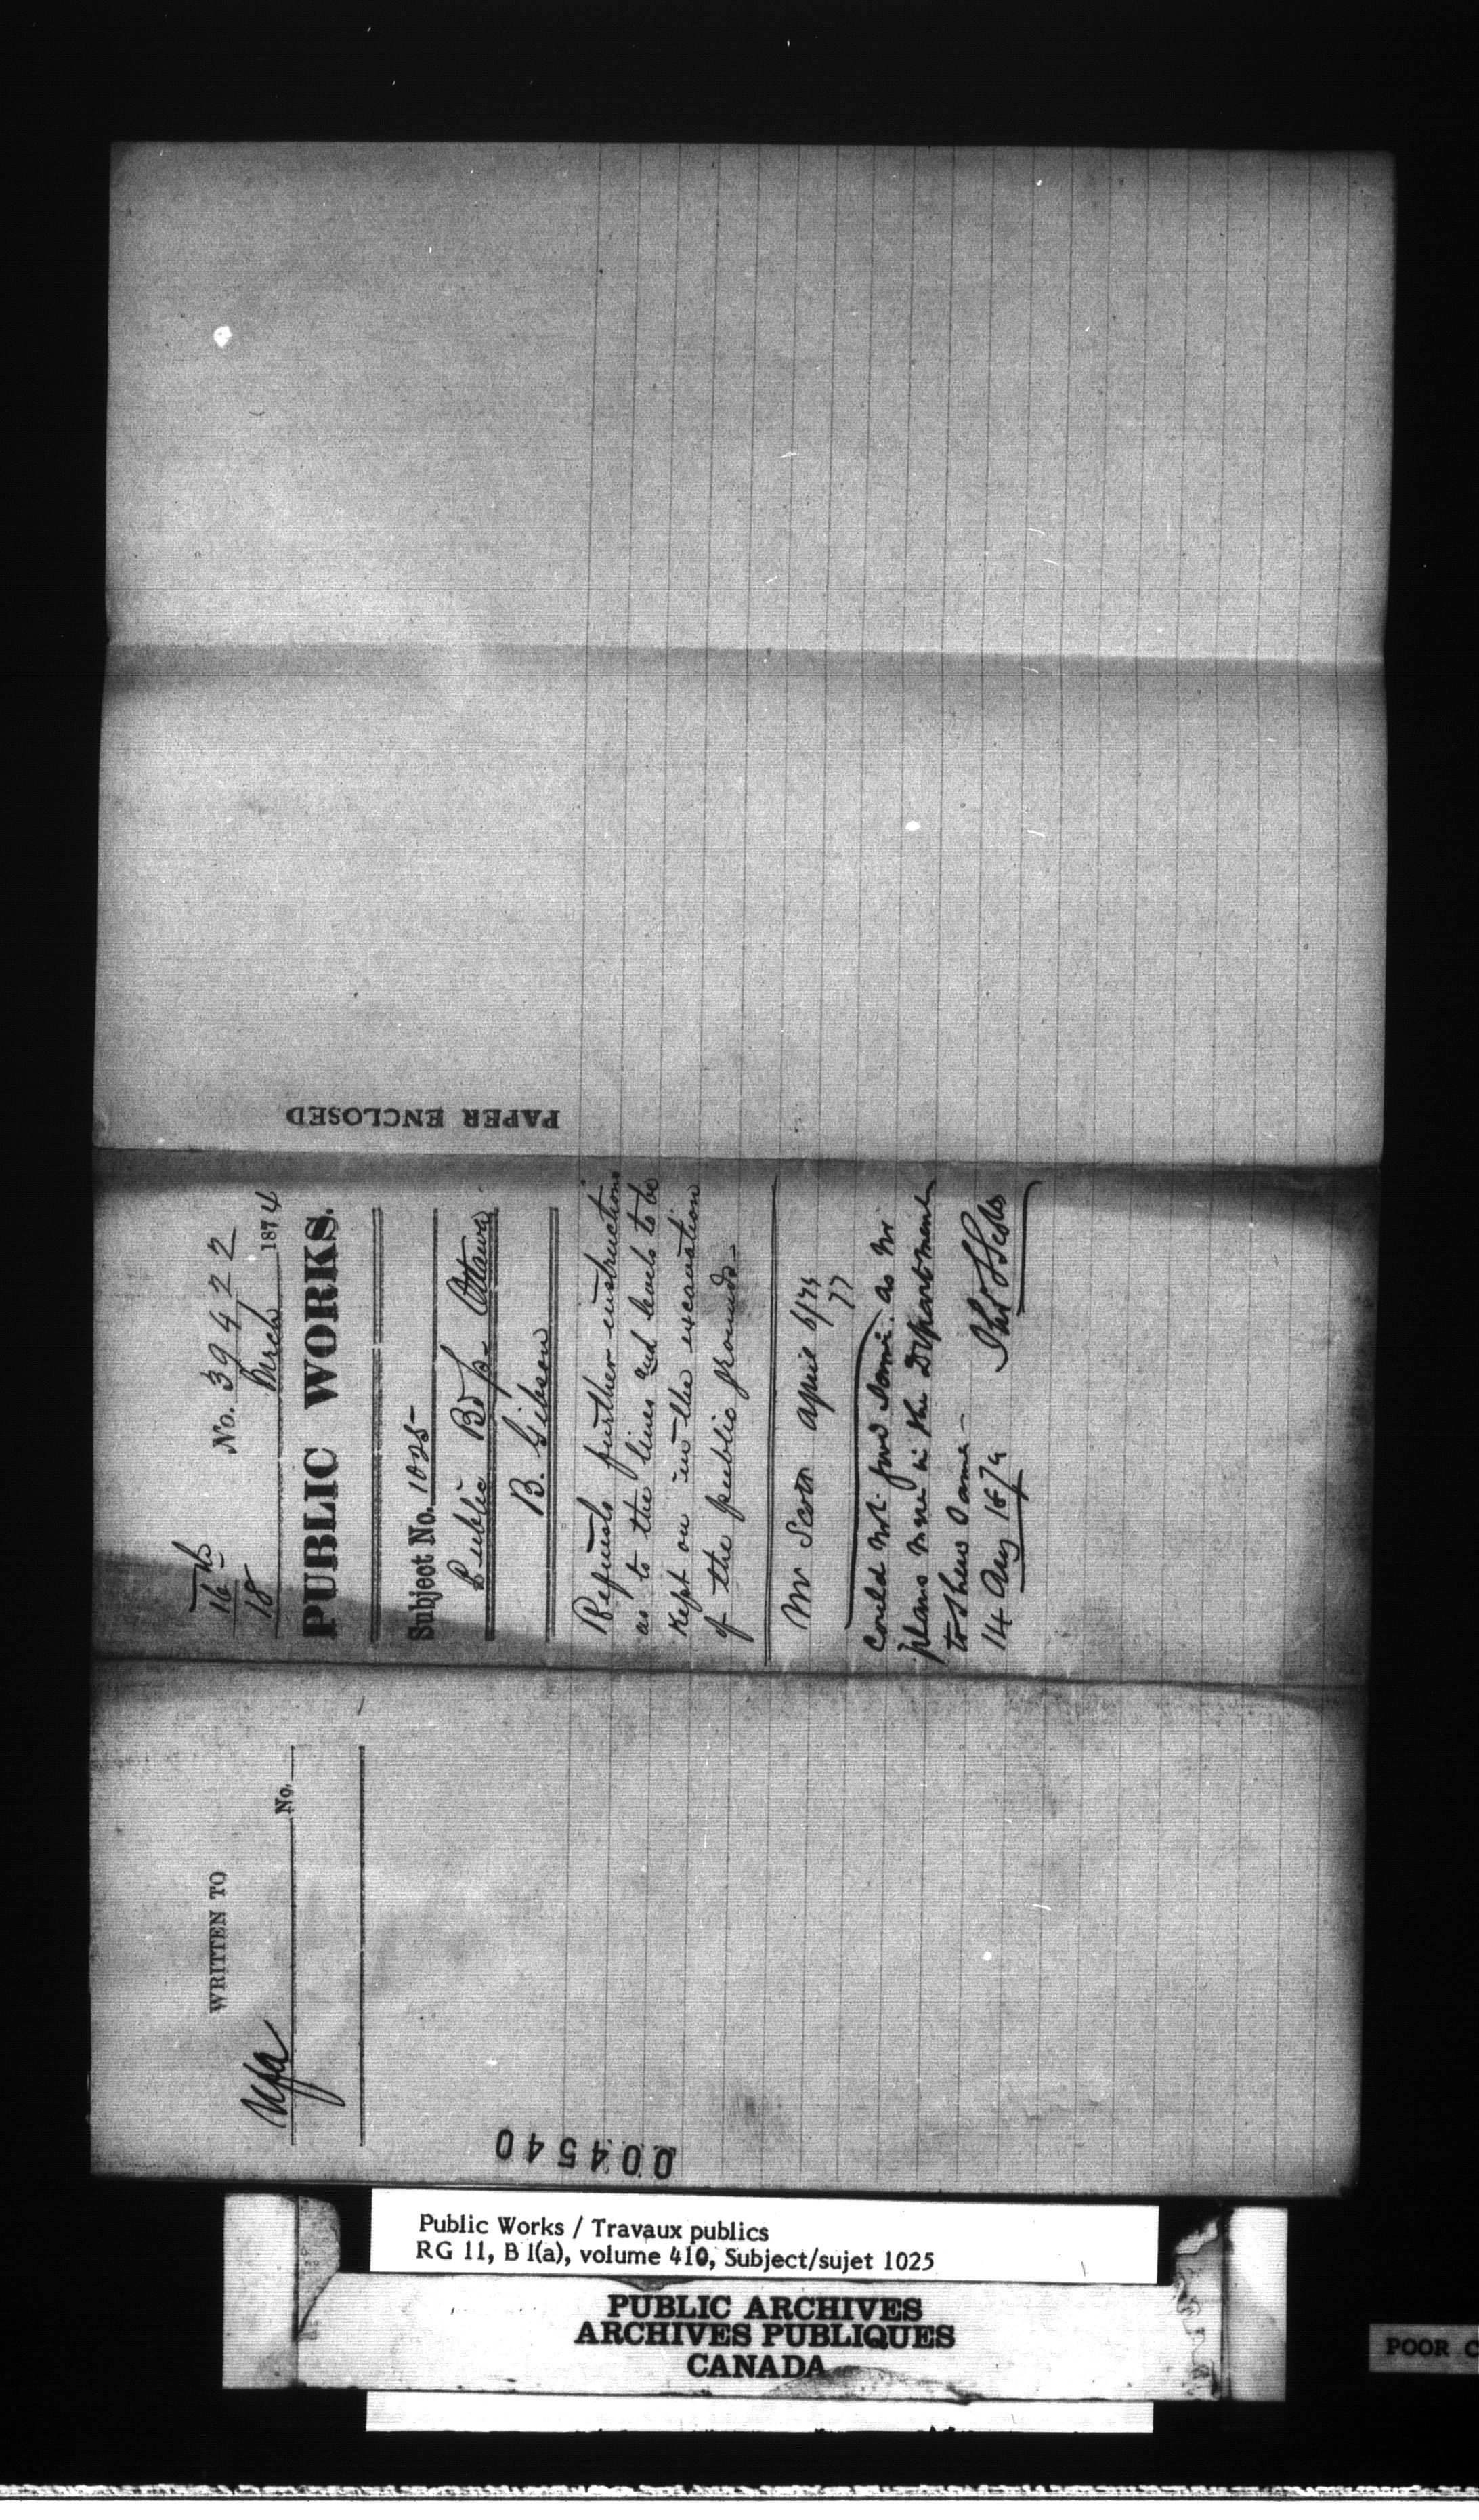 16th
18
No. 39422
March 1874
PUBLIC WORKS.
Subject No. 1025
Public Bdgs. Ottawa
B. Gibson
Requests further instructions
as to the lines and levels to be
kept on in the excavation
of the public grounds—
Mr Scott April 6/74
Could not find as no
plans were in the Department
to shew same—
14 Aug 187
PAPER ENCLOSED
WRITTEN TO
Nfa
No.
004540
Public Works / Travaux publics
RG 11, B 1(a), volume 410, Subject/sujet 1025
PUBLIC ARCHIVES
ARCHIVES PUBLIQUES
CANADA
POOR C